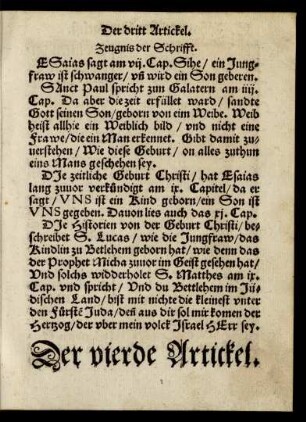 Der dritt Artickel.
Zeugnis der Schrifft.
ESaias sagt am vij. Cap. Sihe / ein Jung-
fraw ist schwanger / vñ wird ein Son geberen.
SAnct Paul spricht zum Galatern am iiij.
Cap. Da aber die zeit erfüllet ward / sandte
Gott seinen Son / geborn von eim Weibe. Weib
heist allhie ein Weiblich bild / vnd nicht eine
Frawe / die ein Man erkennet. Gibt damit zu-
uerstehen / Wie diese Geburt / on alles zuthun
eins Mans geschehen sey.
DIe zeitliche Geburt Christi / hat Esaias
lang zuuor verkündigt am ix. Capitel / da er
sagt / VNS ist ein Kind geborn / ein Son ist
VNS gegeben. Dauon lies auch das xj. Cap.
DIe Historien von der Geburt Christi / be-
schreibet S. Lucas / wie die Jungfraw / das
Kindlin zu Betlehem geborn hat / wie denn das
der Prophet Micha zuuor im Geist gesehen hat /
Vnd solchs widderholet S. Matthes am ix.
Cap. vnd spricht / Vnd du Bettlehem im Jü-
dischen Land / bist mit nichte die kleinest vnter
den Fürstē Juda / deñ aus dir sol mir komen der
Hertzog / der vber mein volck Israel HErr sey.
Der vierde Artickel.